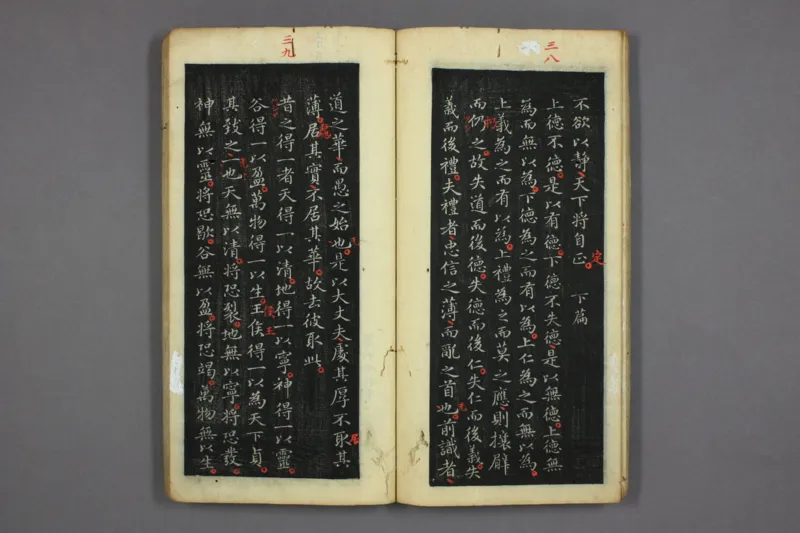 三八
不欲以静天下将自正 下篇
定
上德不德是以有德下德不失德是以無德上德無
為而無以為下德為之而有以為上仁為之而無以為
上義為之而有以為上禮為之而莫之應則攘臂
而仍之故失道而後德失德而後仁失仁而後義失
義而後禮夫禮者忠信之薄而亂之首也前識者
三九
道之華而愚之始也是以大丈夫處其厚不取其
居
薄居其實不居其華故去彼取此
昔之得一者天得一以清地得一以寧神得一以靈
谷得一以盈萬物得一以生王侯得一以為天下貞
侯王
其致之一也天無以清将恐裂地無以寧将恐發
神無以靈将恐歇谷無以盈将恐竭萬物無以生